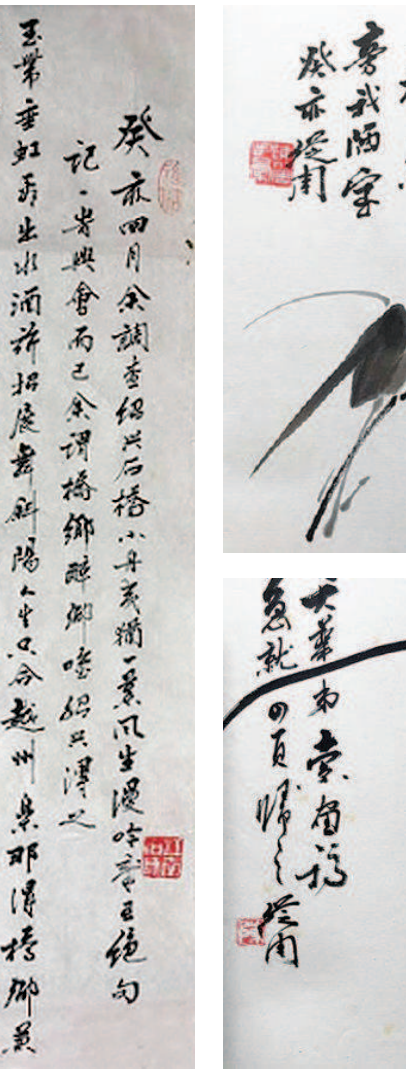 癸亥四月余調查紹興石橋小舟夷猶一景風生漫吟五絕句
記一時興會而已余謂橋鄉醉鄉唯紹興得之
玉帶垂虹看出水酒旗招展舞斜陽人生只合越州樂那得橋鄉兼
旁我陋室
癸亥從周
大華弟索畫稿
急就四頁歸之從周